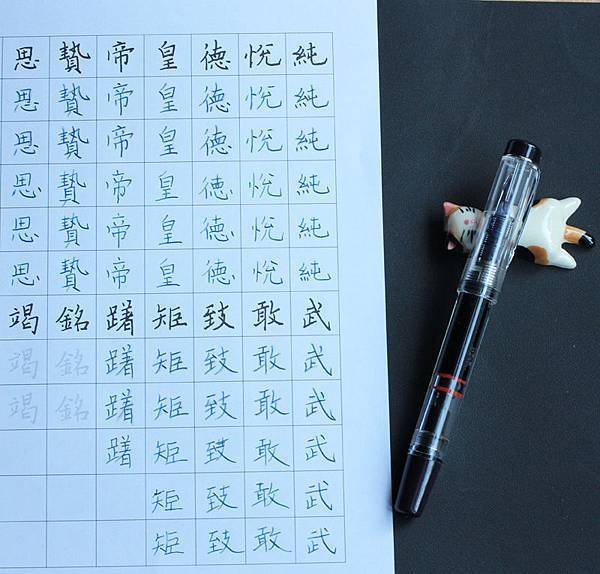 純純純純純純武武武武武武
悅悅悅悅悅悅敢敢敢敢敢敢
德德德德德德致致致致致致
皇皇皇皇皇皇矩矩矩矩矩矩
帝帝帝帝帝帝躇躇躇躇
贄贄贄贄贄贄銘銘銘
思思思思思思竭竭竭